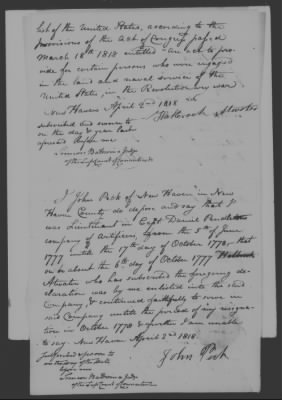 of the United States, according to the
provisions of the Act of Congress passed
March 18th 1818 entitled an act to pro-
vide for certain persons who were engaged
in the land and naval service of the
United States, in the Revolutionary war
New Haven April 2nd 1818
Holbrook Atwater
Subscribed and sworn to
on the day & year last
before me
Simeon Baldwin a Judge
of the Supl Court of Connecticut
I John Peck of New Haven in New
Haven County do depose and say that I
was Lieutenant in Capt Daniel Pendleton
company of Artificers, from the 5th of June
1777 until the 17th day of October 1778, that
on or about the 6th day of October 1777 Holbrook
Atwater who has subscribed the foregoing de-
claration was by me enlisted into the said
Company, & continued faithfully to serve in
said Company until the period of my resigna-
tion in October 1778 & further I am unable
to say. New Haven April 2nd 1818
John Peck
Subscribed & sworn to
before me
Simeon Baldwin a Judge
of the Supl Court of Connecticut